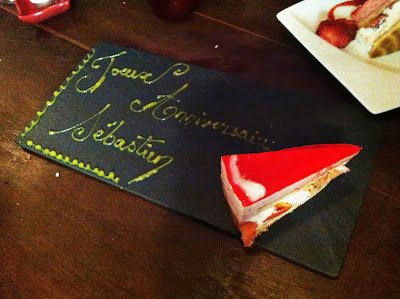 Joeux
Anniversaire
Sébastien